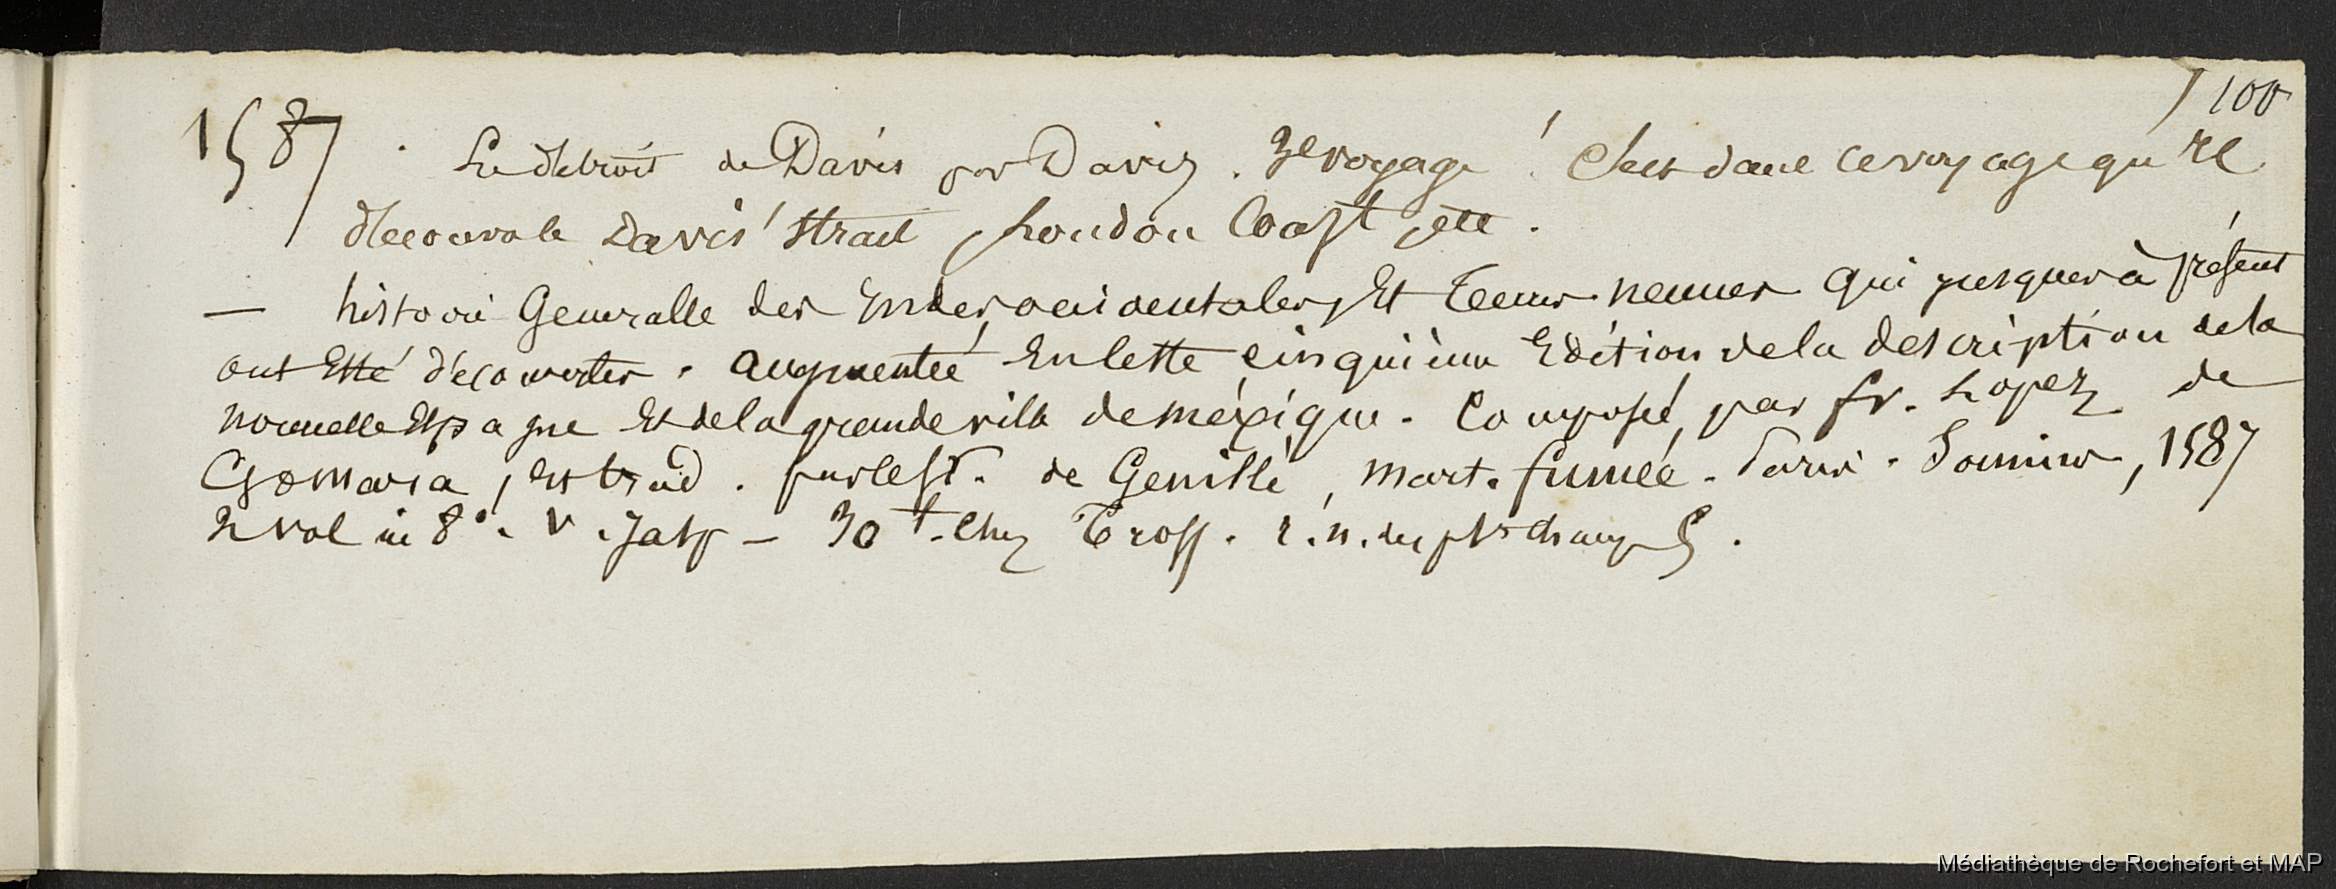 100
1587. Le détroit de Davis par Davis. 3e voyage! C'est dans ce voyage qu'il
découvrit le Davis' Strait, London Coast, etc.
— histoire Generalle des Indes occidentales, Et Terres neuves qui jusques à présent
ont Esté découvertes. augmentée En cette cinquième Edition de la description de la
nouvelle Espagne Et de la grande ville de méxique. Composée par fr. Lopez de
Gomara, Et trad. par le Sr. de Genillé, Mart. fumée. Paris. Sonnius, 1587
2 vol in 8°. V. Jasp — 30 f. Chez Tross. r. n. des pts champs 5.
Médiathèque de Rochefort et MAP